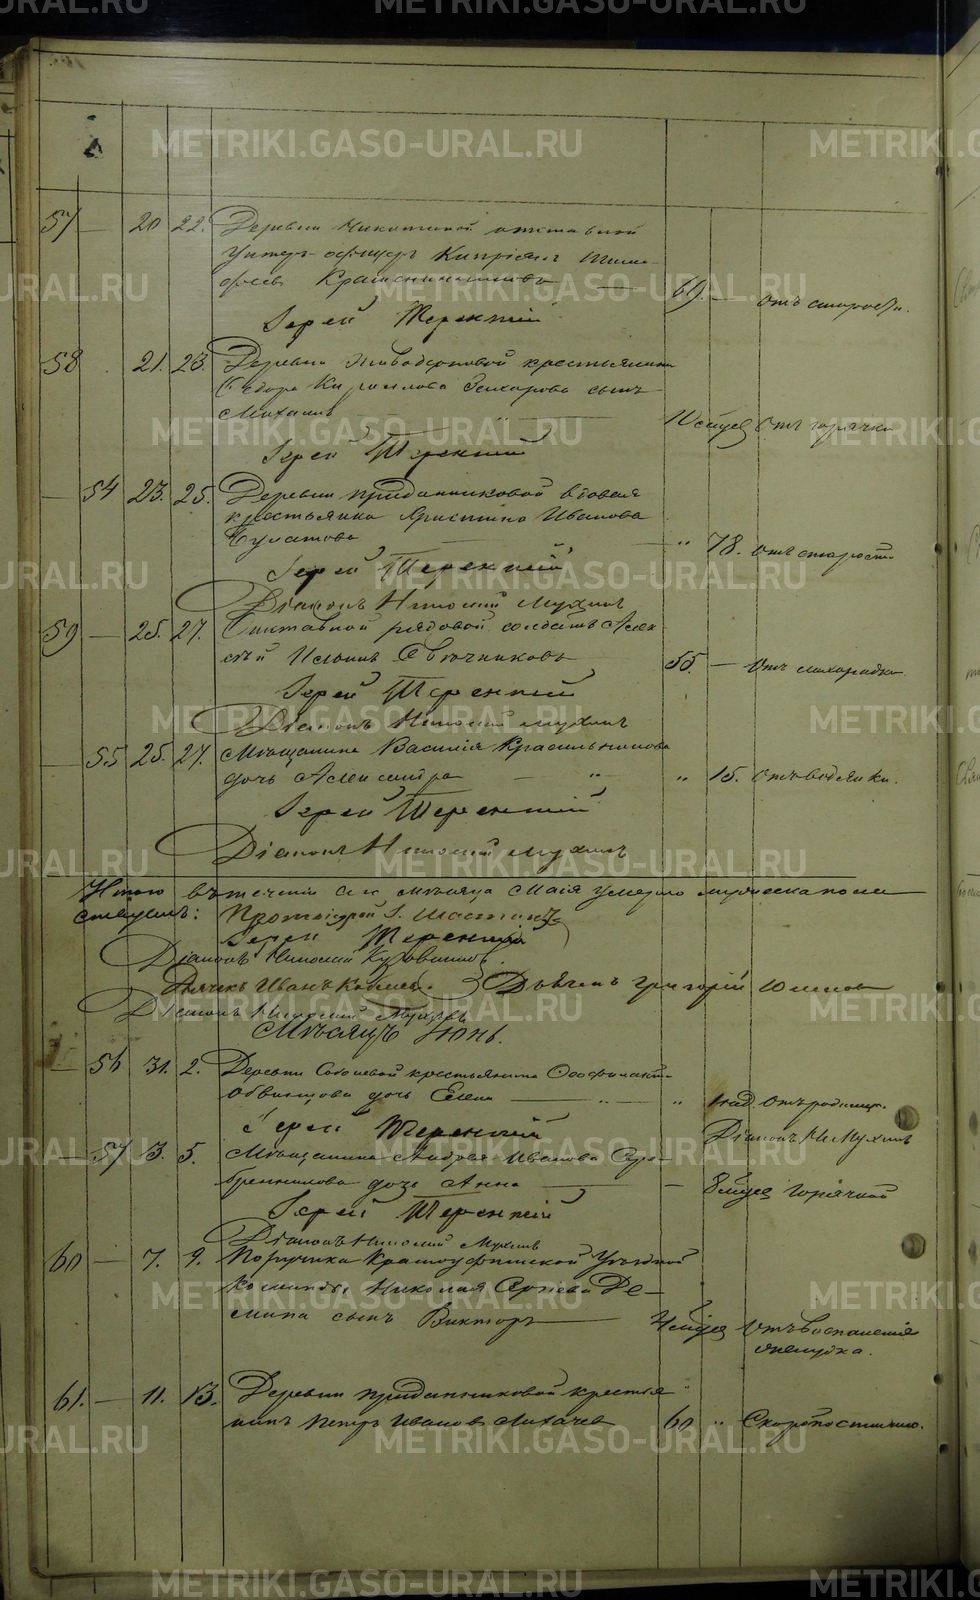 METRIKI.GASO-URAL.RU
57 — 20 22. Деревни Никитиной отставной
Унтеръ-офицеръ Кипріянъ Тимо-
феевъ Крашенинниковъ — 69. — отъ старости.
Іерей Терентій
58 21. 23. Деревни крестьянина
Ѳедора Кирилова Захарова сынъ
Михаилъ — 10 мѣсяц отъ горячки
Іерей Терентій
— 54 23. 25. Деревни Приданниковой вдовая
крестьянка Христина Иванова
Булатова — " 78. отъ старости
Іерей Терентій
Діаконъ Николай Мухинъ
59 — 25. 27. Отставной рядовой солдатъ Алек
сѣй Ключниковъ 55. — отъ лихорадки
Іерей Терентій
Діаконъ Николай Мухинъ
— 55 25. 27. Мѣщанина Василія Красильникова
дочь Александра — " " 15. отъ водянки.
Іерей Терентій
Діаконъ Николай Мухинъ
Итого въ теченіи мѣсяца Маія умерло мужеска пола
Протоіерей І.
Іерей Терентій
Діаконъ Николай
Дьячекъ Иванъ Григорій
Діаконъ Николай
Мѣсяцъ Іюнь.
— 56 31. 2. Деревни Соболевой крестьянина Ѳеофилакта
дочь Елена — " — " 1 нед. отъ родимц.
Іерей Терентій Діаконъ Н. Мухинъ
— 57 3. 5. Мѣщанина Андрея Иванова Сере-
бренникова дочь Анна — — 8 мѣсяц горячкой
Іерей Терентій
Діаконъ Николай Мухинъ
60 — 7. 9. Поручика Красноуфимской Уѣздной
Команды Николая Де-
мина сынъ Викторъ — 4 мѣсяц отъ воспаленія
желудка.
61. — 11. 13. Деревни Приданниковой крестья
нинъ Петръ Ивановъ Лихачев 60 " Скоропостижно.